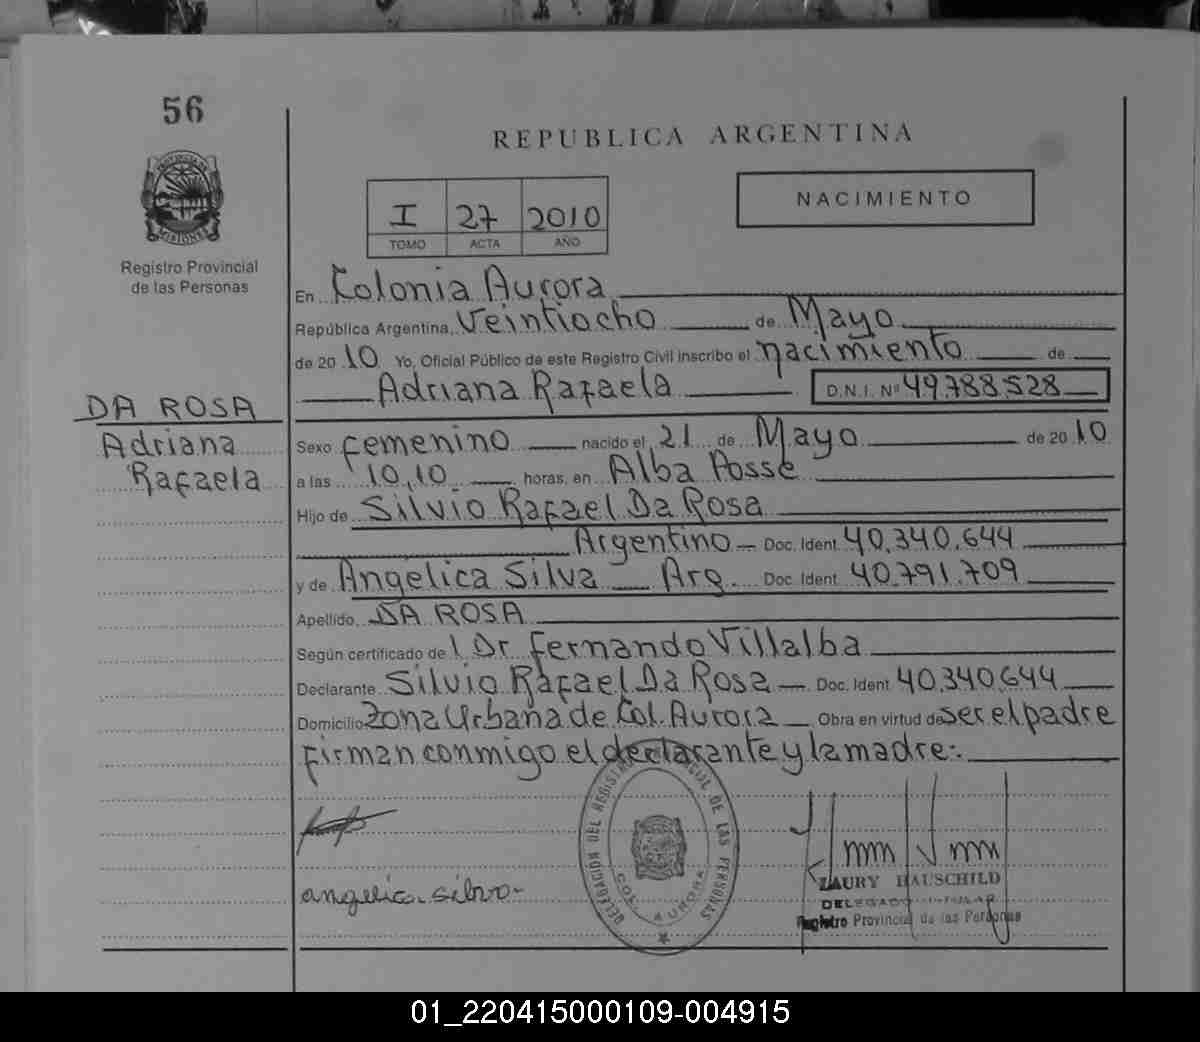 56
REPUBLICA ARGENTINA
NACIMIENTO
I 27 2010
TOMO ACTA AÑO
PROVINCIA DE
MISIONES
Registro Provincial
de las Personas
En Colonia Aurora
República Argentina, Veintiocho de Mayo
de 2010 Yo, Oficial Público de este Registro Civil inscribo el nacimiento de
Adriana Rafaela D.N.I. Nº 49.788.528
DA ROSA
Adriana
Rafaela
Sexo femenino nacido el 21 de Mayo de 2010
a las 10,10 horas, en Alba Posse
Hijo de Silvio Rafael Da Rosa
Argentino Doc. Ident 40.340.644
y de Angélica Silva Arg. Doc. Ident 40.791.709
Apellido DA ROSA
Según certificado de l Dr. Fernando Villalba
Declarante Silvio Rafael Da Rosa Doc. Ident 40.340.644
Domicilio Zona Urbana de Col. Aurora Obra en virtud de ser el padre
firman conmigo el declarante y la madre:.
DELEGACIÓN DEL REGISTRO PROVINCIAL DE LAS PERSONAS
COL. AURORA
angelica silva
LAURY HAUSCHILD
DELEGADO TITULAR
Registro Provincial de las Personas
01_220415000109-004915